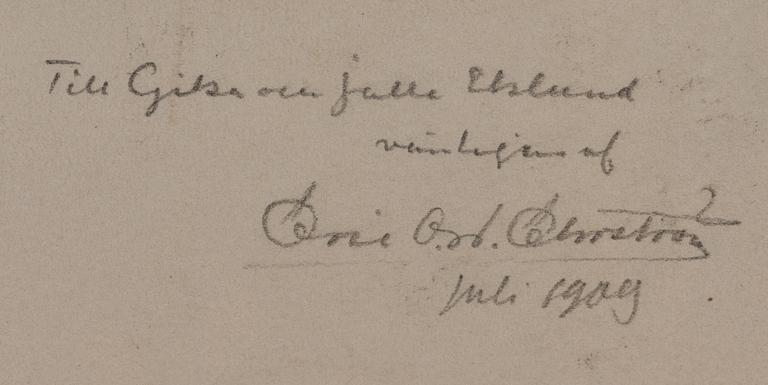 Till Gitsa och Jalle Eklund
vänligen af
Eric O.W. Ehrström
Juli 1909